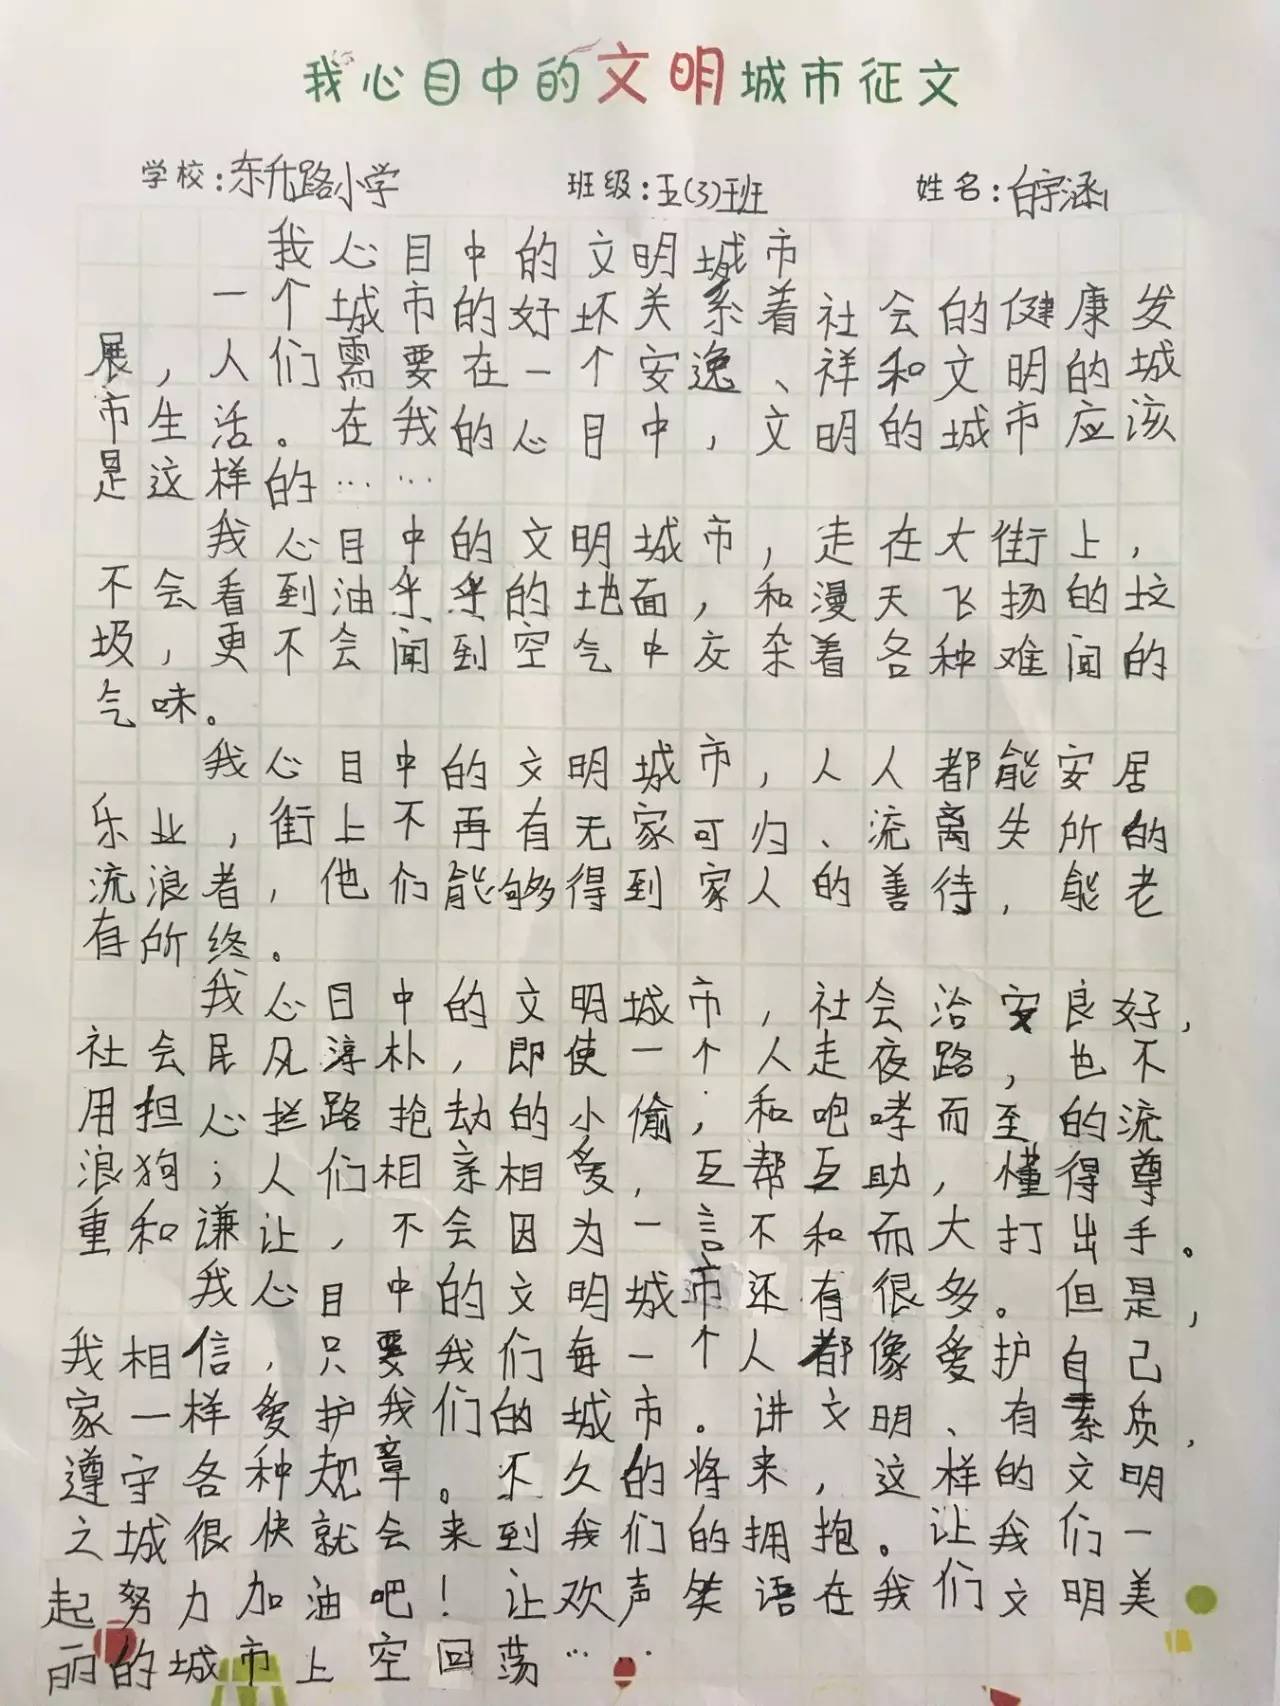 我心目中的文明城市征文
学校:东升路小学 班级:五(3)班 姓名:白宇涵
我心目中的文明城市
一个城市的好坏关系着社会的健康发
展,人们需要在一个安逸、祥和文明的城
市生活。在我的心目中,文明的城市应该
是这样的……
我心目中的文明城市,走在大街上,
不会看到油乎乎的地面,和漫天飞扬的垃
圾,更不会闻到空气中夜杂着各种难闻的
气味。
我心目中的文明城市,人人都能安居
乐业,街上不再有无家可归、流离失所的
流浪者,他们能够得到家人的善待,能老
有所终。
我心目中的文明城市,社会治安良好,
社会民风淳朴,即使一个人走夜路,也不
用担心拦路抢劫的小偷,和咆哮而至的流
浪狗;人们相亲相爱,互帮互助,懂得尊
重和谦让,不会因为一言不和而大打出手。
我心目中的文明城市还有很多。但是,
我相信,只要我们每一个人都像爱护自己
家一样爱护我们的城市。讲文明、有素质,
遵守各种规章。不久的将来,这样的文明
之城很快就会来到我们的拥抱。让我们一
起努力加油吧!让欢声笑语在我们文明美
丽的城市上空回荡……